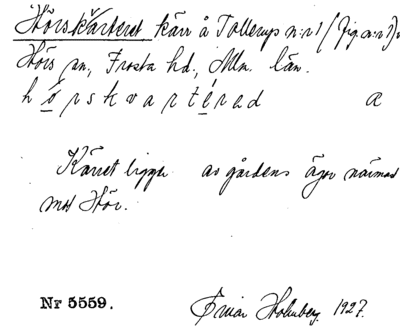 Hörskärteret kärr å Tollerups n:r 1 (fig. a:r 1) i
Hörs sn, Frosta hd., Mlm. län.
h ö r s k v a r t é r e d a
Kärret ligger av gårdens ägor närmast
mot Hör.
Nr 5559. Holmberg. 1927.